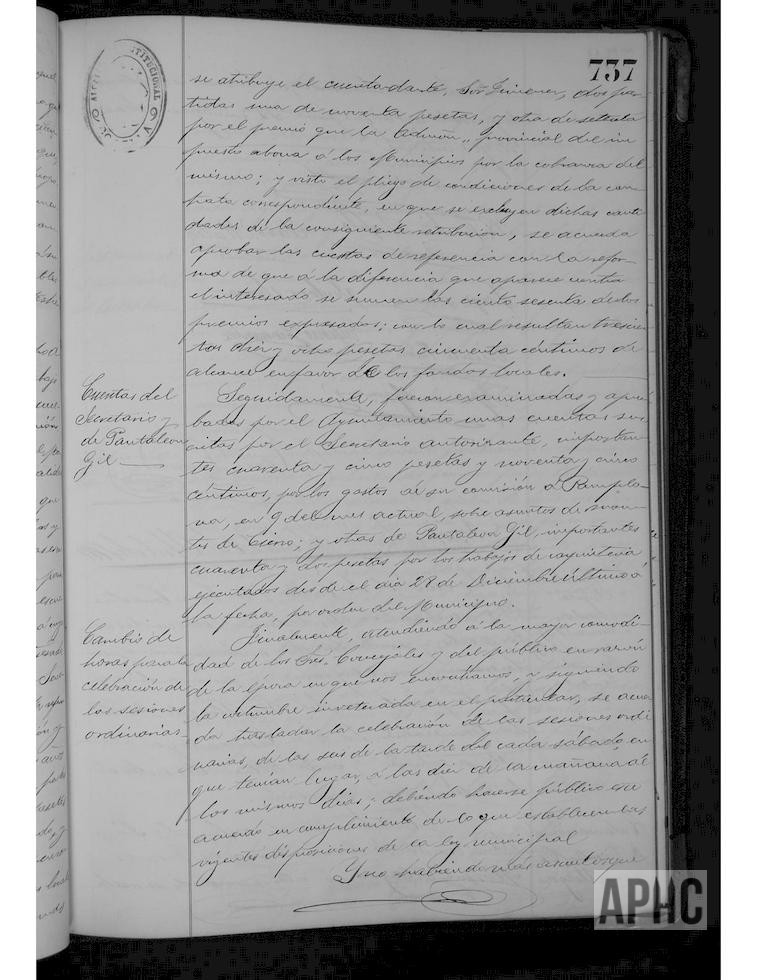 737
se atribuye el cuenta-dante, Sor. Gimenez, dos par-
tidas una de noventa pesetas, y otra de setenta
por el premio que la Admón. provincial del im
puesto abona á los Municipios por la cobranza del
mismo; y visto el pliego de condiciones de la con
trata correspondiente, en que se excluyen dichas canti
dades de la consiguiente retribucion, se acuerda
aprobar las cuentas de referencia con la refor-
ma de que á la diferencia que aparece contra
el interesado se sumen las ciento sesenta de los
premios expresados; con lo cual resultan trescien
tas diez y ocho pesetas cincuenta céntimos de
alcance en favor de los fondos locales.
Cuentas del
Secretario y
de Pantaleon
Gil
Seguidamente, fueron examinadas y apro
badas por el Ayuntamiento unas cuentas sus-
critas por el Secretario autorizante, importan-
tes cuarenta y cinco pesetas y noventa y cinco
céntimos, por los gastos de su comisión á Pamplo-
na, en 9 del mes actual, sobre asuntos de mon-
tes de Cierzo; y otras de Pantaleon Gil, importantes
cuarenta y dos pesetas por los trabajos de
ejecutados desde el dia 28 de Diciembre último á
la fecha, por orden del Municipio.
Cambio de
horas para la
celebración de
las sesiones
ordinarias
Finalmente, atendiendo á la mayor comodi-
dad de los Sres. Concejales y del público en razón
de la época en que nos encontramos, y siguiendo
la costumbre inveterada en el particular, se acuer
da trasladar la celebración de las sesiones ordi
narias, de las seis de la tarde del cada sábado en
que tenían lugar, á las diez de la mañana de
los mismos dias; debiendo hacerse público ese
acuerdo en cumplimiento de lo que establecen las
vigentes disposiciones de la ley municipal
Y no habiendo más asuntos que
APHC